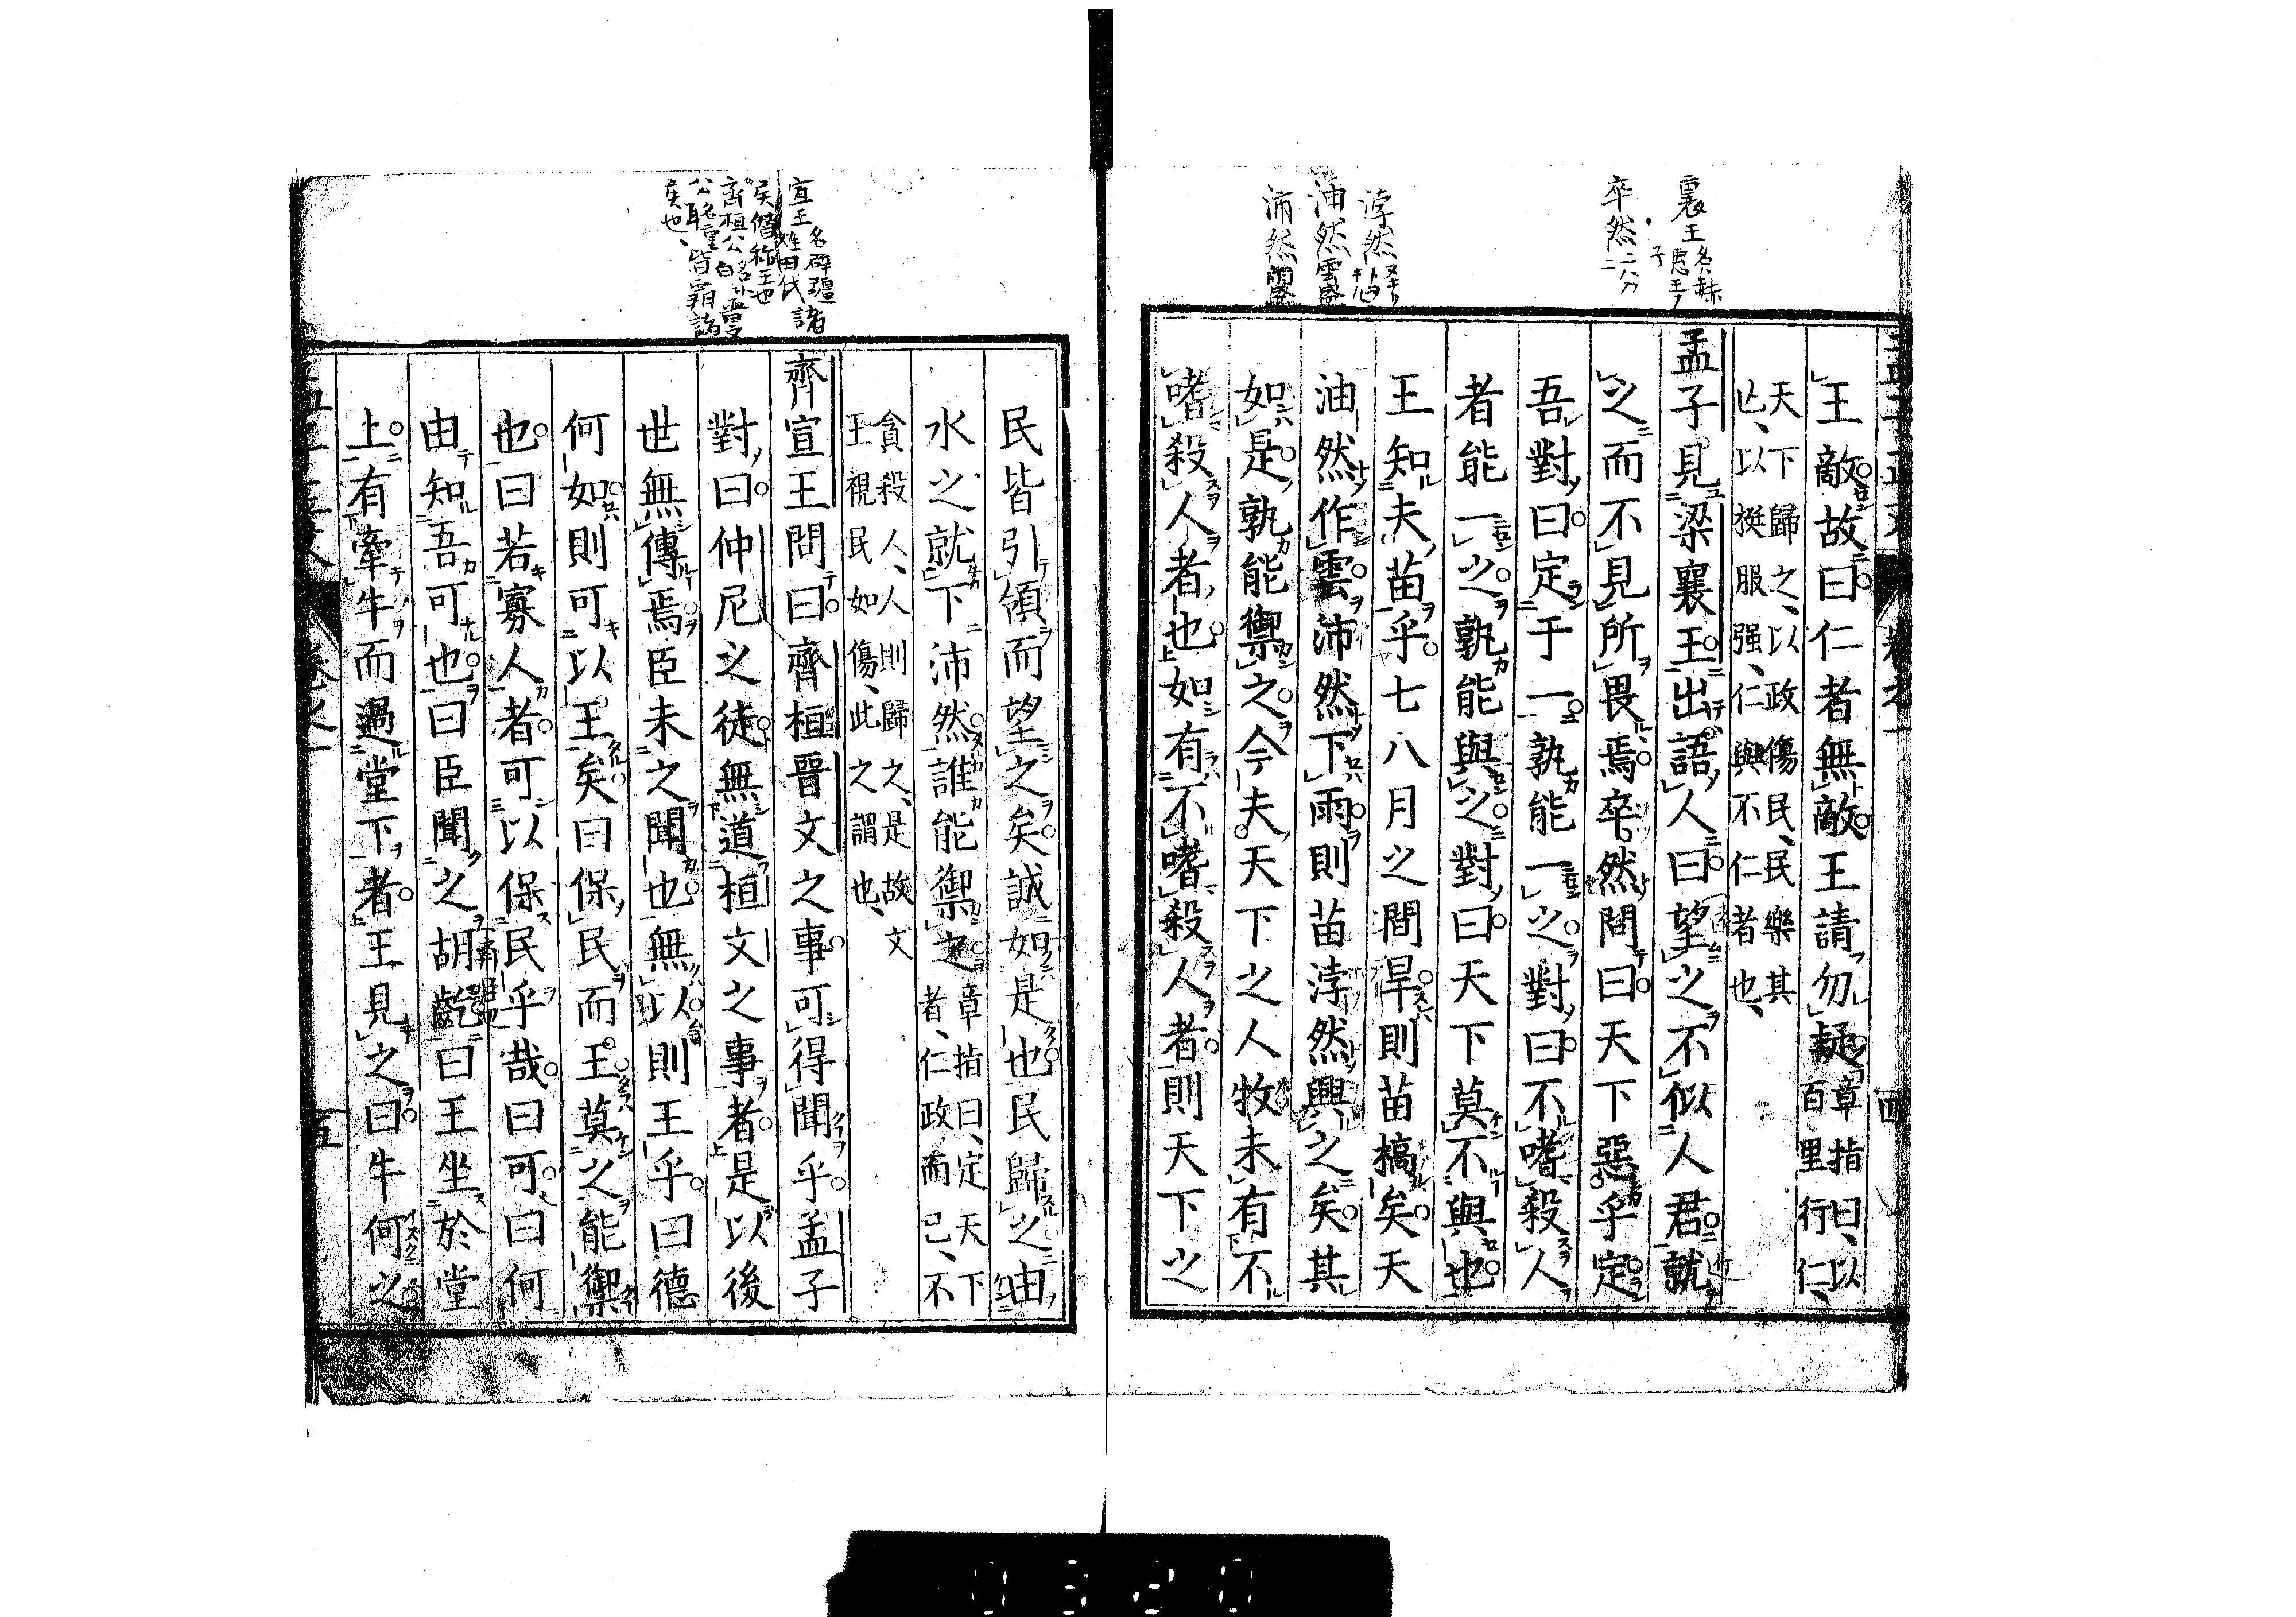 襄王名赫惠王ノ子
卒然ニハカニ
浡然
油然雲盛
沛然雨盛
王敵故曰仁者無敵王請勿疑章指曰、以百里行仁、
天下歸之、以政傷民、民樂其
亡、以挺服强、仁與不仁者也、
孟子見梁襄王出語人曰望之不似人君就
之而不見所畏焉卒然問曰天下惡乎定
吾對曰定于一孰能一之對曰不嗜殺人
者能一之孰能與之對曰天下莫不與也
王知夫苗乎七八月之間旱則苗槁矣天
油然作雲沛然下雨則苗浡然興之矣其
如是孰能禦之今夫天下之人牧未有不
嗜殺人者也如有不嗜殺人者則天下之
宣王名辟疆諸
侯僭称王也
姓田氏
齊桓公名小白晋文
公名重耳皆覇諸
侯也、
民皆引領而望之矣誠如是也民歸之由
水之就下沛然誰能禦之章指曰、定天下者、仁政而已、不
貪殺人、人則歸之、是故文
王視民如傷、此之謂也、
齊宣王問曰齊桓晉文之事可得聞乎孟子
對曰仲尼之徒無道桓文之事者是以後
世無傳焉臣未之聞也無以則王乎曰德
何如則可以王矣曰保民而王莫之能禦
也曰若寡人者可以保民乎哉曰可曰何
由知吾可也曰臣聞之胡齕曰王坐於堂
上有牽牛而過堂下者王見之曰牛何之
五
0320